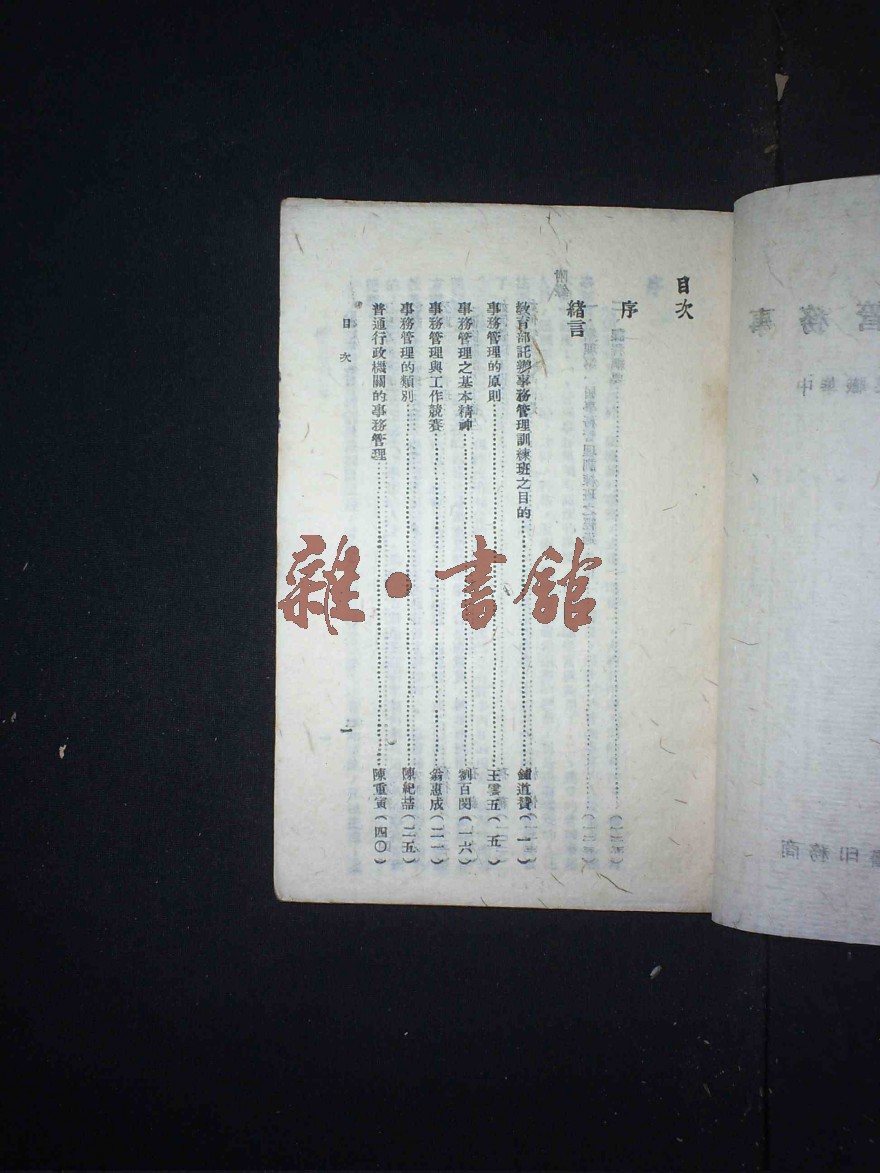 目次
序
緒言
教育部託辦事務管理訓練班之目的……鍾道贊(一)
事務管理的原則……王雲五(五)
事務管理之基本精神……劉百閔(一六)
事務管理與工作競賽……翁惠成(二一)
事務管理的類別……陳紀喆(二五)
普通行政機關的事務管理……陳重寅(四〇)
目次
一
雜·書館